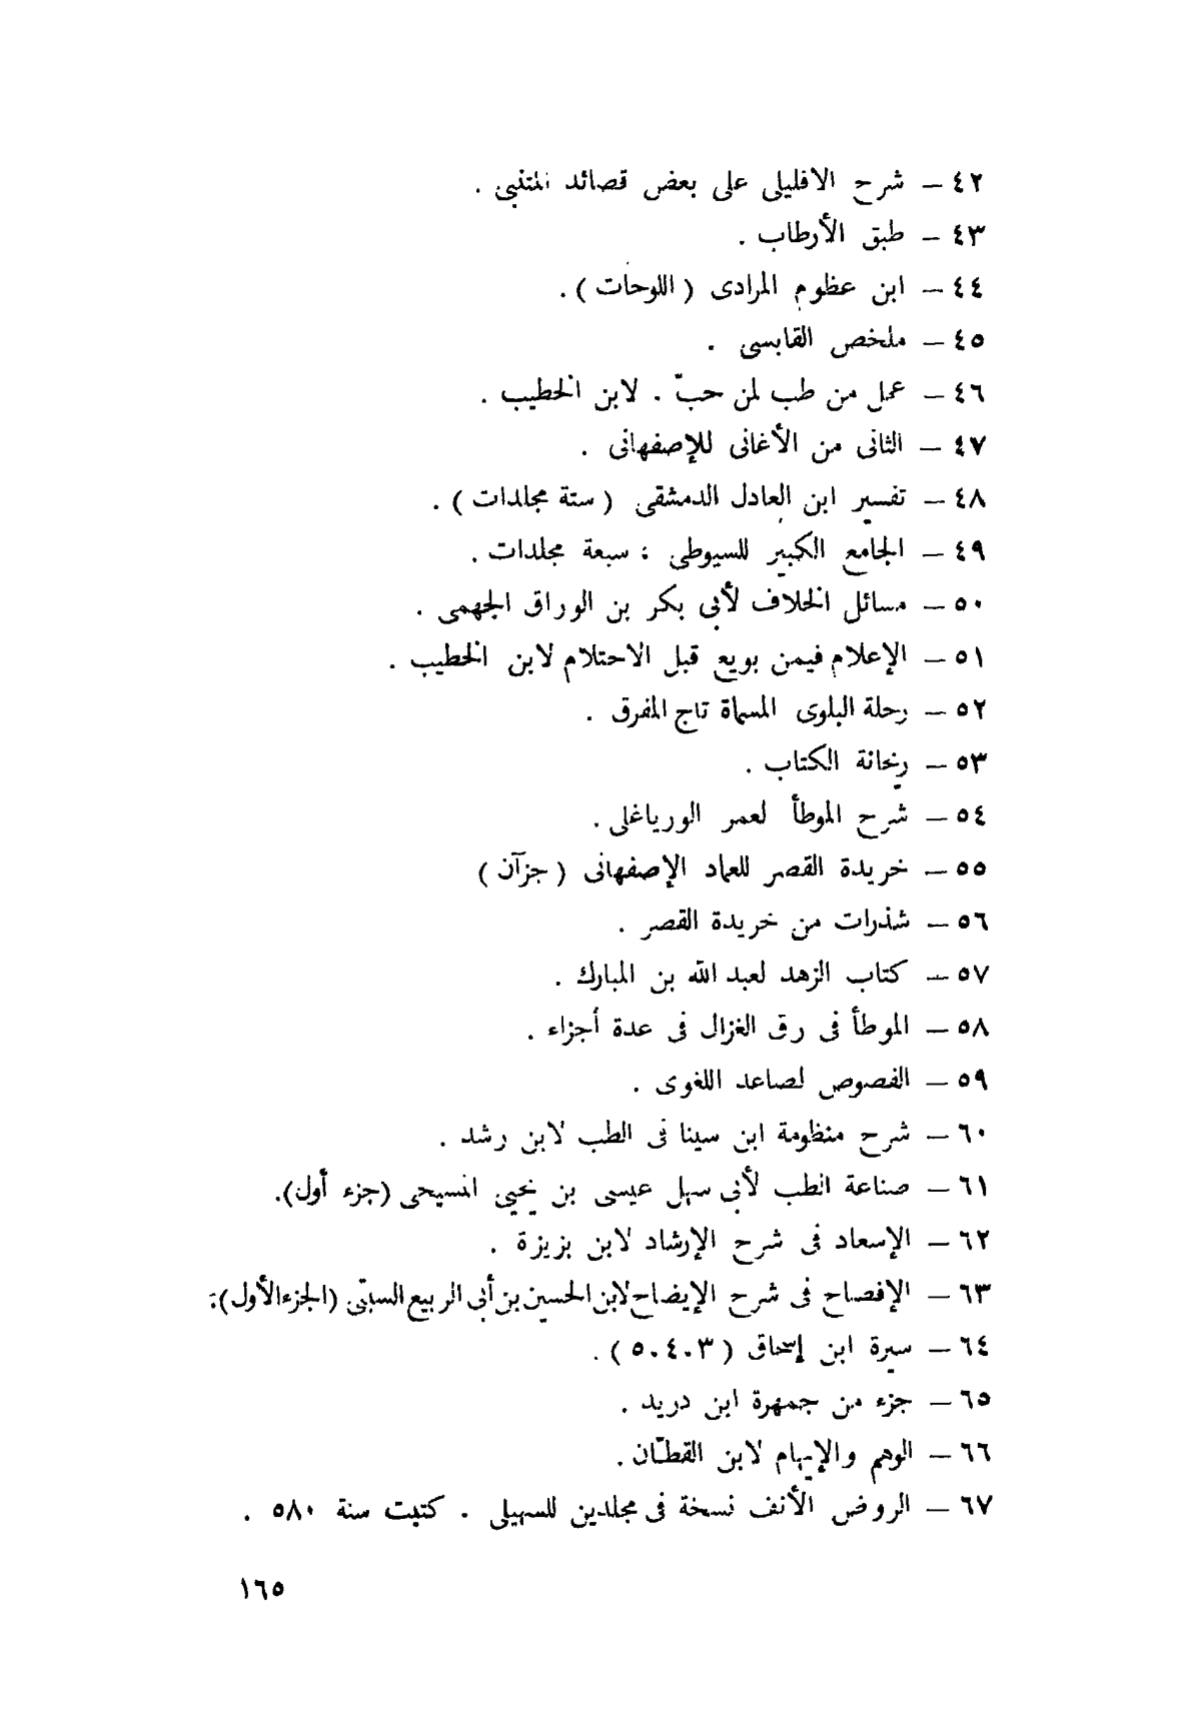 ٤٢ — شرح الافليلى على بعض قصائد المتنبى .
٤٣ — طبق الأرطاب .
٤٤ — ابن عظوم المرادى ( اللوحات ) .
٤٥ — ملخص القابسى .
٤٦ — عمل من طب لمن حبّ . لابن الخطيب .
٤٧ — الثانى من الأغانى للإصفهانى .
٤٨ — تفسير ابن العادل الدمشقى ( ستة مجلدات ) .
٤٩ — الجامع الكبير للسيوطى : سبعة مجلدات .
٥٠ — مسائل الخلاف لأبى بكر بن الوراق الجهمى .
٥١ — الإعلام فيمن بويع قبل الاحتلام لابن الخطيب .
٥٢ — رحلة البلوى المسماة تاج المفرق .
٥٣ — ريحانة الكتاب .
٥٤ — شرح الموطأ لعمر الورياغلى .
٥٥ — خريدة القصر للعماد الإصفهانى ( جزآن )
٥٦ — شذرات من خريدة القصر .
٥٧ — كتاب الزهد لعبد الله بن المبارك .
٥٨ — الموطأ فى رق الغزال فى عدة أجزاء .
٥٩ — الفصوص لصاعد اللغوى .
٦٠ — شرح منظومة ابن سينا فى الطب لابن رشد .
٦١ — صناعة الطب لأبى سهل عيسى بن يحيى المسيحى (جزء أول).
٦٢ — الإسعاد فى شرح الإرشاد لابن بزيزة .
٦٣ — الإفصاح فى شرح الإيضاح لابن الحسين بن أبى الربيع السبتى (الجزء الأول):
٦٤ — سيرة ابن إسحاق ( ٣٠٤٠٥ ) .
٦٥ — جزء من جمهرة ابن دريد .
٦٦ — الوهم والإيهام لابن القطّان .
٦٧ — الروض الأنف نسخة فى مجلدين للسهيلى . كتبت سنة ٥٨٠ .
١٦٥